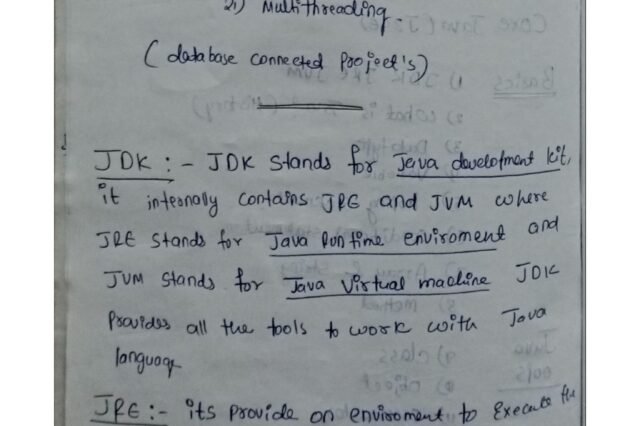 21) Multithreading.
(database connected Project's)
JDK :- JDK stands for Java develofment kit,
it internally contains JRE and JVM where
JRE stands for Java Runtime enviroment and
JVM stands for Java Virtual machine JDK
Provides all the tools to work with Java
language
JRE :- its provide on enviroment to Execute the